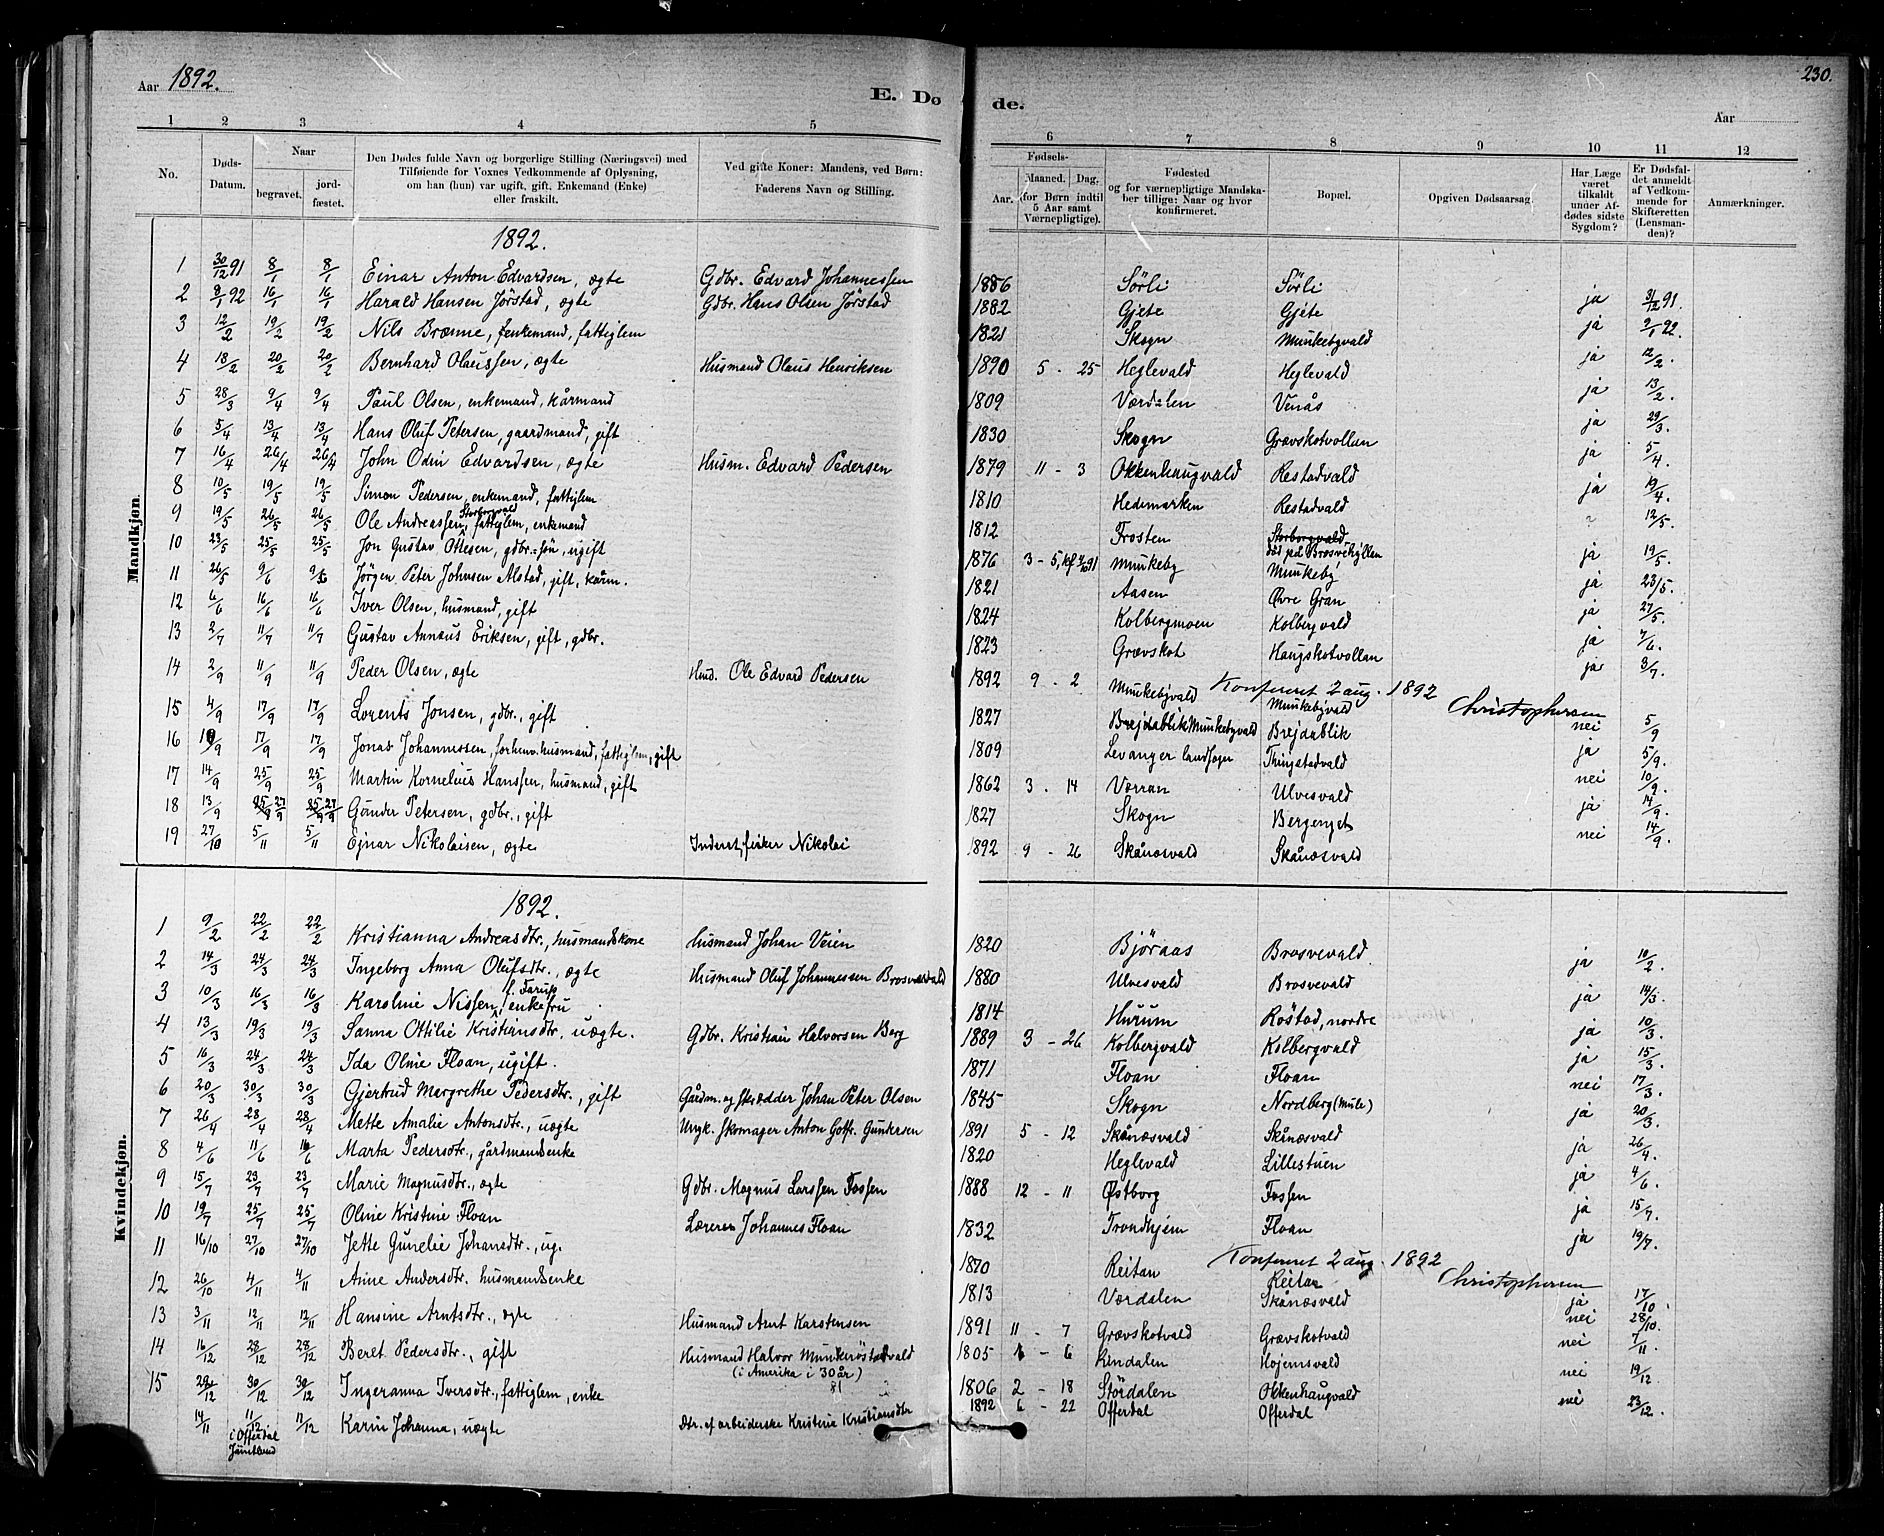 Aar 1892.
E. Dø de.
230.
Aar
1 2 3 4 5 6 7 8 9 10 11 12
No. | Døds-Datum. | Naar begravet. | jord-fæstet. | Den Dødes fulde Navn og borgerlige Stilling (Næringsvei) med Tilføiende for Voxnes Vedkommende af Oplysning, om han (hun) var ugift, gift, Enkemand (Enke) eller fraskilt. | Ved gifte Koner: Mandens, ved Børn: Faderens Navn og Stilling. | Fødsels- Aar. | Maaned. Dag. (for Børn indtil 5 Aar samt Værnepligtige). | Fødested og for værnepligtige Mandskaber tillige: Naar og hvor konfirmeret. | Bopæl. | Opgiven Dødsaarsag. | Har Læge været tilkaldt under Afdødes sidste Sygdom? | Er Dødsfaldet anmeldt af Vedkommende for Skifteretten (Lensmanden)? | Anmærkninger.
Mandkjøn.
1892.
1 30/12 91 8/1 8/1 Einar Anton Edvardsen, ægte Gdbr. Edvard Johannessen 1886 Sörli Sörli ja 31/12 91.
2 8/1 92 16/1 16/1 Harald Hansen Jörstad, ægte Gdbr. Hans Olsen Jörstad 1882 Gjete Gjete ja 9/1 92.
3 12/2 19/2 19/2 Nils Brænne, enkemand, fattiglem 1821 Skogn Munkebyvald ja 12/2.
4 18/2 20/2 20/2 Bernhard Olaussen, ægte Husmand Olaus Henriksen 1890 5 - 25 Heglevald Heglevald ja 13/2.
5 28/3 9/4 9/4 Paul Olsen, enkemand, kårmand 1809 Værdalen Venås ja 29/3.
6 5/4 13/4 13/4 Hans Oluf Petersen, gaardmand, gift 1830 Skogn Grævskotvollan ja 5/4.
7 16/4 26/4 26/4 John Odin Edvardsen, ægte Husm. Edvard Pedersen 1879 11 - 3 Okkenhaugvald Restadvald ja 19/4.
8 10/5 19/5 19/5 Simon Pedersen, enkemand, fattiglem 1810 Hedemarken Restadvald ? 12/5.
9 19/5 26/5 26/5 Ole Andreassen, Storborgvald fattiglem, enkemand 1812 Frosten Storborgvald ja 19/5.
10 23/5 25/5 25/5 Jon Gustav Ottesen, gdbr.sön, ugift 1876 3 - 5, kf 4/10 91 Munkeby död ved Brosvehyllan Munkeby ja 23/5.
11 26/5 9/6 9/6 Jörgen Peter Johnsen Alstad, gift, kårm. 1821 Aasen Øvre Gran ja 27/5.
12 6/6 16/6 16/6 Iver Olsen, husmand, gift 1824 Kolbergmoen Kolbergvald ja 7/6.
13 2/7 11/7 11/7 Gustav Annæus Eriksen, gift, gdbr. 1823 Grævskot Haugskotvollan ja 3/7.
Konfereret 2 aug. 1892 Christophersen
14 2/9 11/9 11/9 Peder Olsen, ægte Hmd. Ole Edvard Pedersen 1892 9 - 2 Munkebyvald Munkebyvald nei 5/9
15 4/9 17/9 17/9 Lorents Jonsen, gdbr., gift 1827 Brejdablik Munkebyvald Brejdablik ja 5/9.
16 10/9 17/9 17/9 Jonas Johannessen, forhenv. husmand, fattiglem, gift 1809 Levanger landsogn Thingstadvald nei 10/9.
17 14/9 25/9 25/9 Martin Kornelius Hanssen, husmand, gift 1862 3 - 14 Værran Ulvesvald ja 14/9.
18 13/9 25/9 27/9 25/9 27/9 Gunder Petersen, gdbr., gift 1827 Skogn Bergenget nei 14/9.
19 27/10 5/11 5/11 Ejnar Nikolaisen, ægte Inderst, fisker Nikolai 1892 9 - 26 Skånæsvald Skånæsvald
Kvindekjøn.
1892.
1 9/2 22/2 22/2 Kristianna Andreasdtr., husmandskone Husmand Johan Veien 1820 Björaas Brosvevald ja 10/2.
2 14/3 24/3 24/3 Ingeborg Anna Olufsdtr., ægte Husmand Oluf Johannessen Brosvevald 1880 Ulvesvald Brosvevald ja 14/3.
3 10/3 16/3 16/3 Karoline Nissen, f. Farup enkefru 1814 Hurum Röstad, nordre ja 10/3.
4 13/3 19/3 19/3 Sanna Ottilie Kristiansdtr., uægte. Gdbr. Kristian Halvorsen Berg 1889 3 - 26 Kolbergvald Kolbergvald ja 15/3.
5 16/3 24/3 24/3 Ida Oline Floan, ugift. 1871 Floan Floan nei 17/3.
6 20/3 30/3 30/3 Gjertrud Margrethe Pedersdtr., gift Gårdm. og skrædder Johan Peter Olsen 1845 Skogn Nordberg (Mule) ja 20/3.
7 26/4 28/4 28/4 Mette Amalie Antonsdtr., uægte Ungk. skomager Anton Gotfr. Gundersen 1891 5 - 12 Skånæsvald Skånæsvald ja 26/4.
8 4/6 11/6 11/6 Marta Pedersdtr., gårdmandsenke 1820 Heglevald Lillestuen ja 4/6.
9 15/7 23/7 23/7 Marie Magnusdtr., ægte Gdbr. Magnus Larssen Fossen 1888 12 - 11 Østborg Fossen ja 15/7.
10 19/7 25/7 25/7 Oline Kristine Floan Læreren Johannes Floan 1832 Trondhjem Floan ja 19/7.
Konfereret 2 aug. 1892 Christophersen
11 16/10 27/10 27/10 Jette Gunelie Johansdtr., ug. 1870 Reitan Reitan ja 17/10.
12 26/10 4/11 4/11 Anne Andersdtr. husmandsenke 1813 Værdalen Skånæsvald nei 28/10.
13 3/11 12/11 12/11 Hansine Arntsdtr., ægte Husmand Arnt Karstensen 1891 11 - 7 Grævskotvald Grævskotvald nei 7/11.
14 16/12 28/12 28/12 Beret Pedersdtr., gift Husmand Halvor Munkeröstadvald (i Amerika i 30 år) 1805 - 6 Rindalen Hojemsvald nei 19/12
15 29/12 30/12 30/12 Ingeranna Iversdtr., fattiglem, enke 81 1806 2 - 18 Stördalen Okkenhaugvald nei 23/12.
14/11 11/12 i Offerdal Jämtland 11/12 Karin Johanna, uægte dtr. af arbeiderske Kristina Kristiansdtr 1892 6 - 22 Offerdal Offerdal